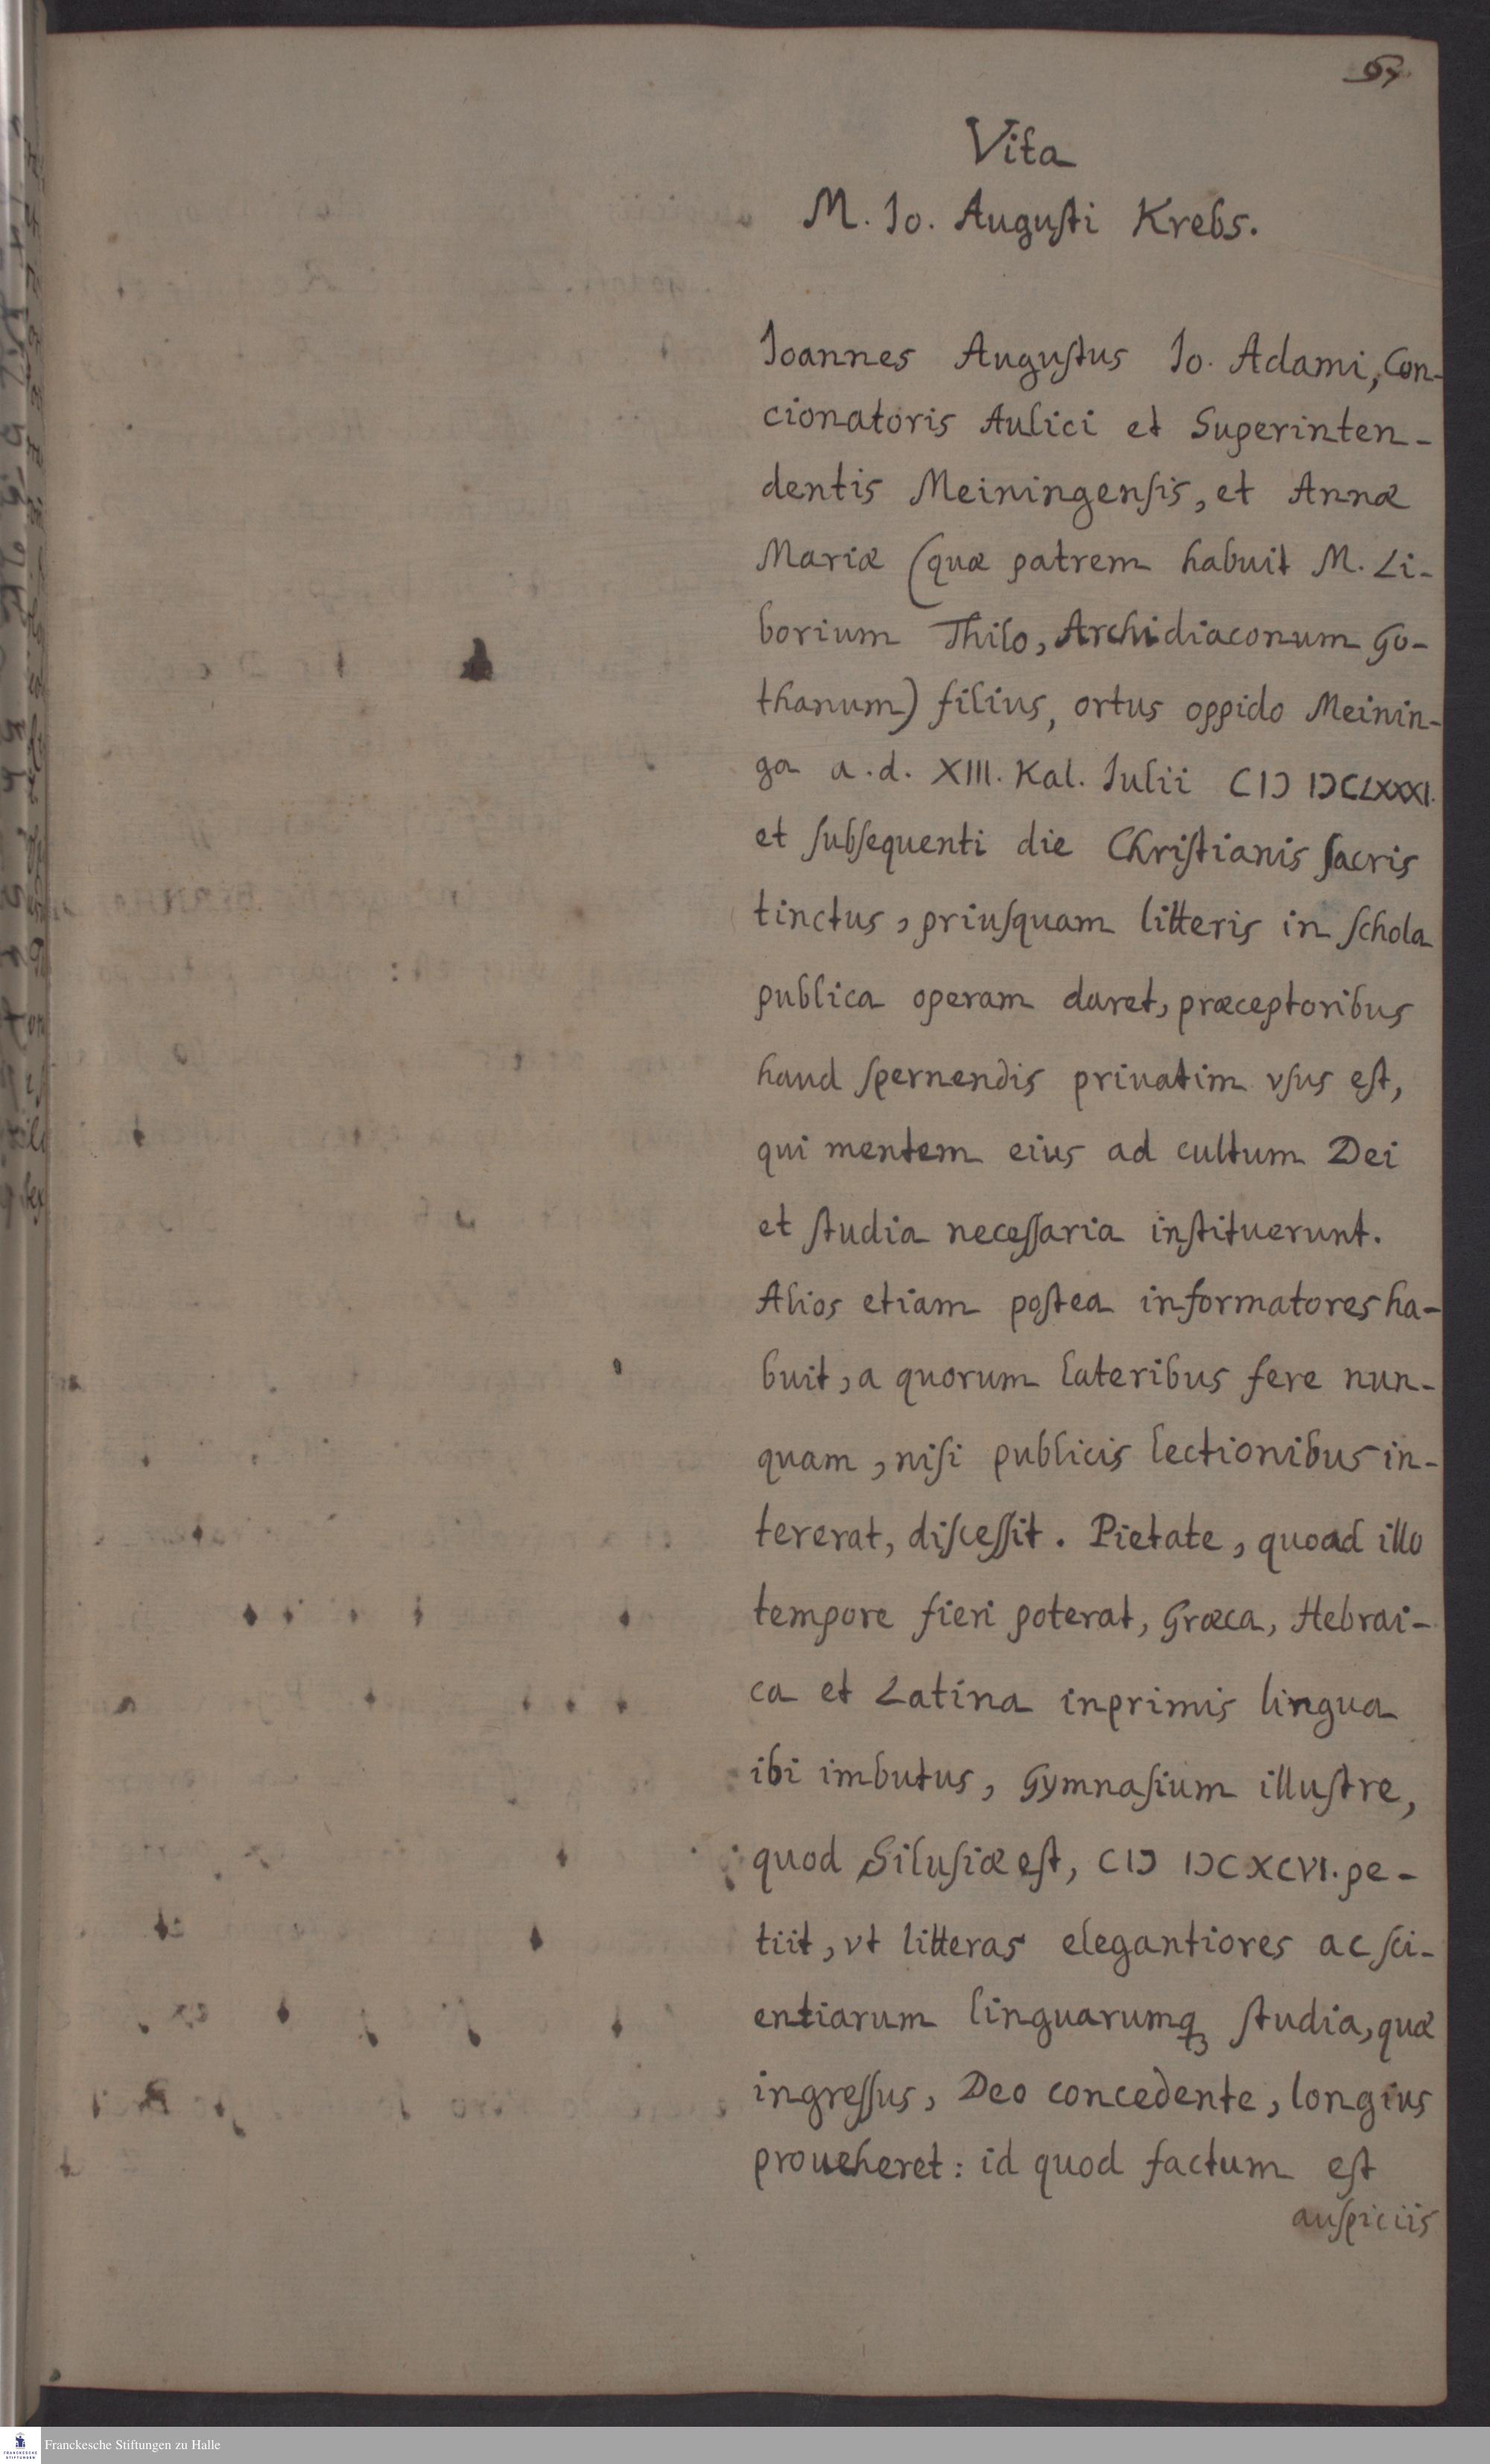 67.
Vita
M. Io. Auguſti Krebs.
Ioannes Auguſtus Io. Adami, Con-
cionatoris Aulici et Superinten-
dentis Meiningenſis, et Annæ
Mariæ (quæ patrem habuit M. Li-
borium Thilo, Archidiaconum Go-
thanum) filius, ortus oppido Meinin-
ga a. d. XIII. Kal. Iulii CIↃ IↃCLXXXI.
et ſubſequenti die Chriſtianis ſacris
tinctus, priuſquam litteris in ſchola
publica operam daret, præceptoribus
haud ſpernendis priuatim vſus eſt,
qui mentem eius ad cultum Dei
et ſtudia neceſſaria inſtituerunt.
Alios etiam poſtea informatores ha-
buit, a quorum lateribus fere nun-
quam, niſi publicis lectionibus in-
tererat, diſceſſit. Pietate, quoad illo
tempore fieri poterat, Græca, Hebrai-
ca et Latina inprimis lingua
ibi imbutus, Gymnaſium illuſtre,
quod Siluſiæ eſt, CIↃ IↃCXCVI. pe-
tiit, vt litteras elegantiores ac ſci-
entiarum linguarumqꝫ ſtudia, quæ
ingreſſus, Deo concedente, longius
proueheret: id quod factum eſt
auſpiciis
Franckesche Stiftungen zu Halle